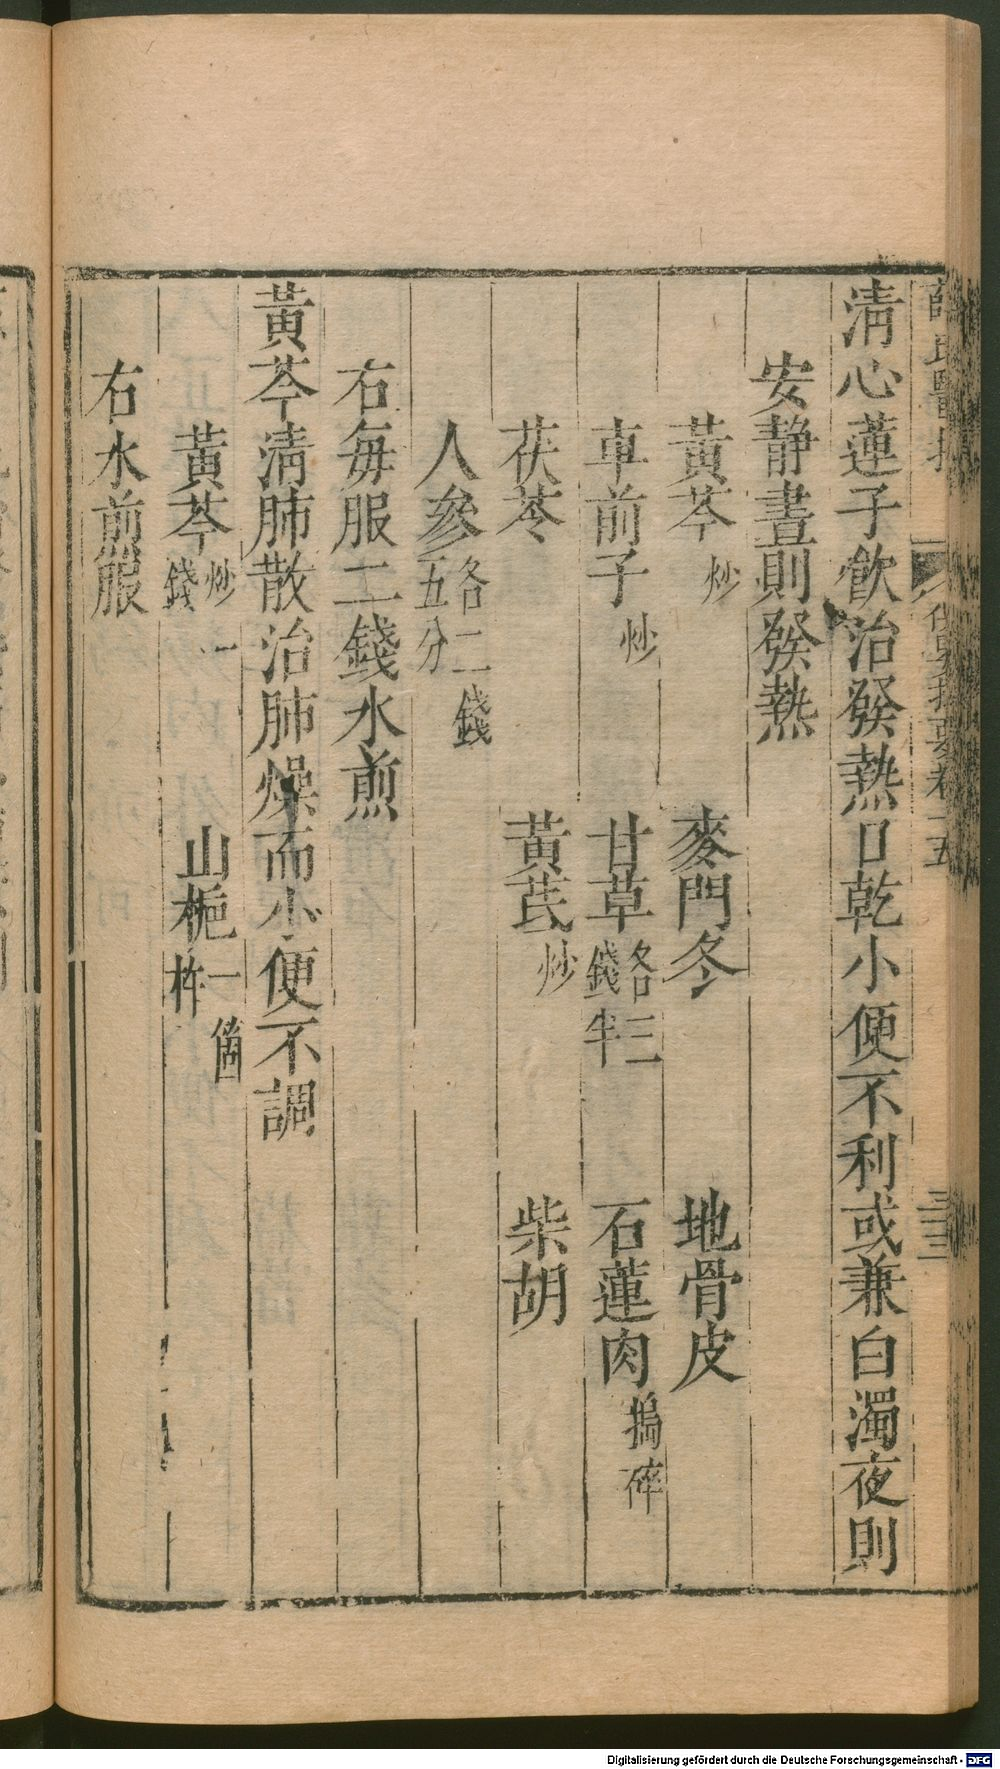 清心蓮子飲治發熱口乾小便不利或兼白濁夜則
安静晝則發熱
黃芩炒 麥門冬 地骨皮
車前子炒 甘草各三錢半 石蓮肉搗碎
茯苓 黃茋炒 柴胡
人參各二錢五分
右每服二錢水煎
黃芩清肺散治肺燥而小便不調
黃芩炒一錢 山梔一箇杵
右水煎服
Digitalisierung gefördert durch die Deutsche Forschungsgemeinschaft - DFG